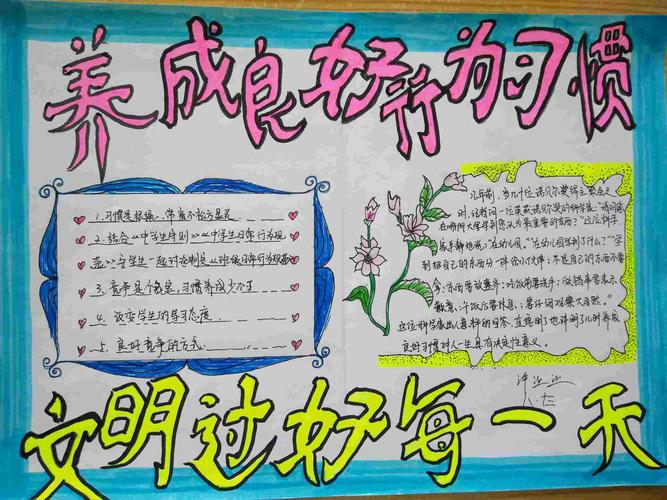 养成良好行为习惯
1.习惯是根绳，常常不松方显灵
2.结合《中学生守则》《中学生日常行为规
范》与学生一起讨论制定《班级日常行为规范》
3.竞争是个宝，习惯养成少不了
4.改变学生的学习态度
5.良好竞争的方式
几年前，当几十位诺贝尔奖得主聚会之
时，记者问一位荣获诺贝尔奖的科学家：“请问您
在哪所大学学到您认为最重要的东西？”这位科学
家平静地说：“在幼儿园。”“在幼儿园学到了什么？”“学
到把自己的东西分一半给小伙伴；不是自己的东西不要
拿；东西要放整齐；吃饭前要洗手；做错事要表示
歉意；午饭后要休息；要仔细观察大自然。”
这位科学家出人意料的回答，直接明了地说明了儿时养成
良好习惯对人一生具有决定性意义。
八.七
文明过好每一天